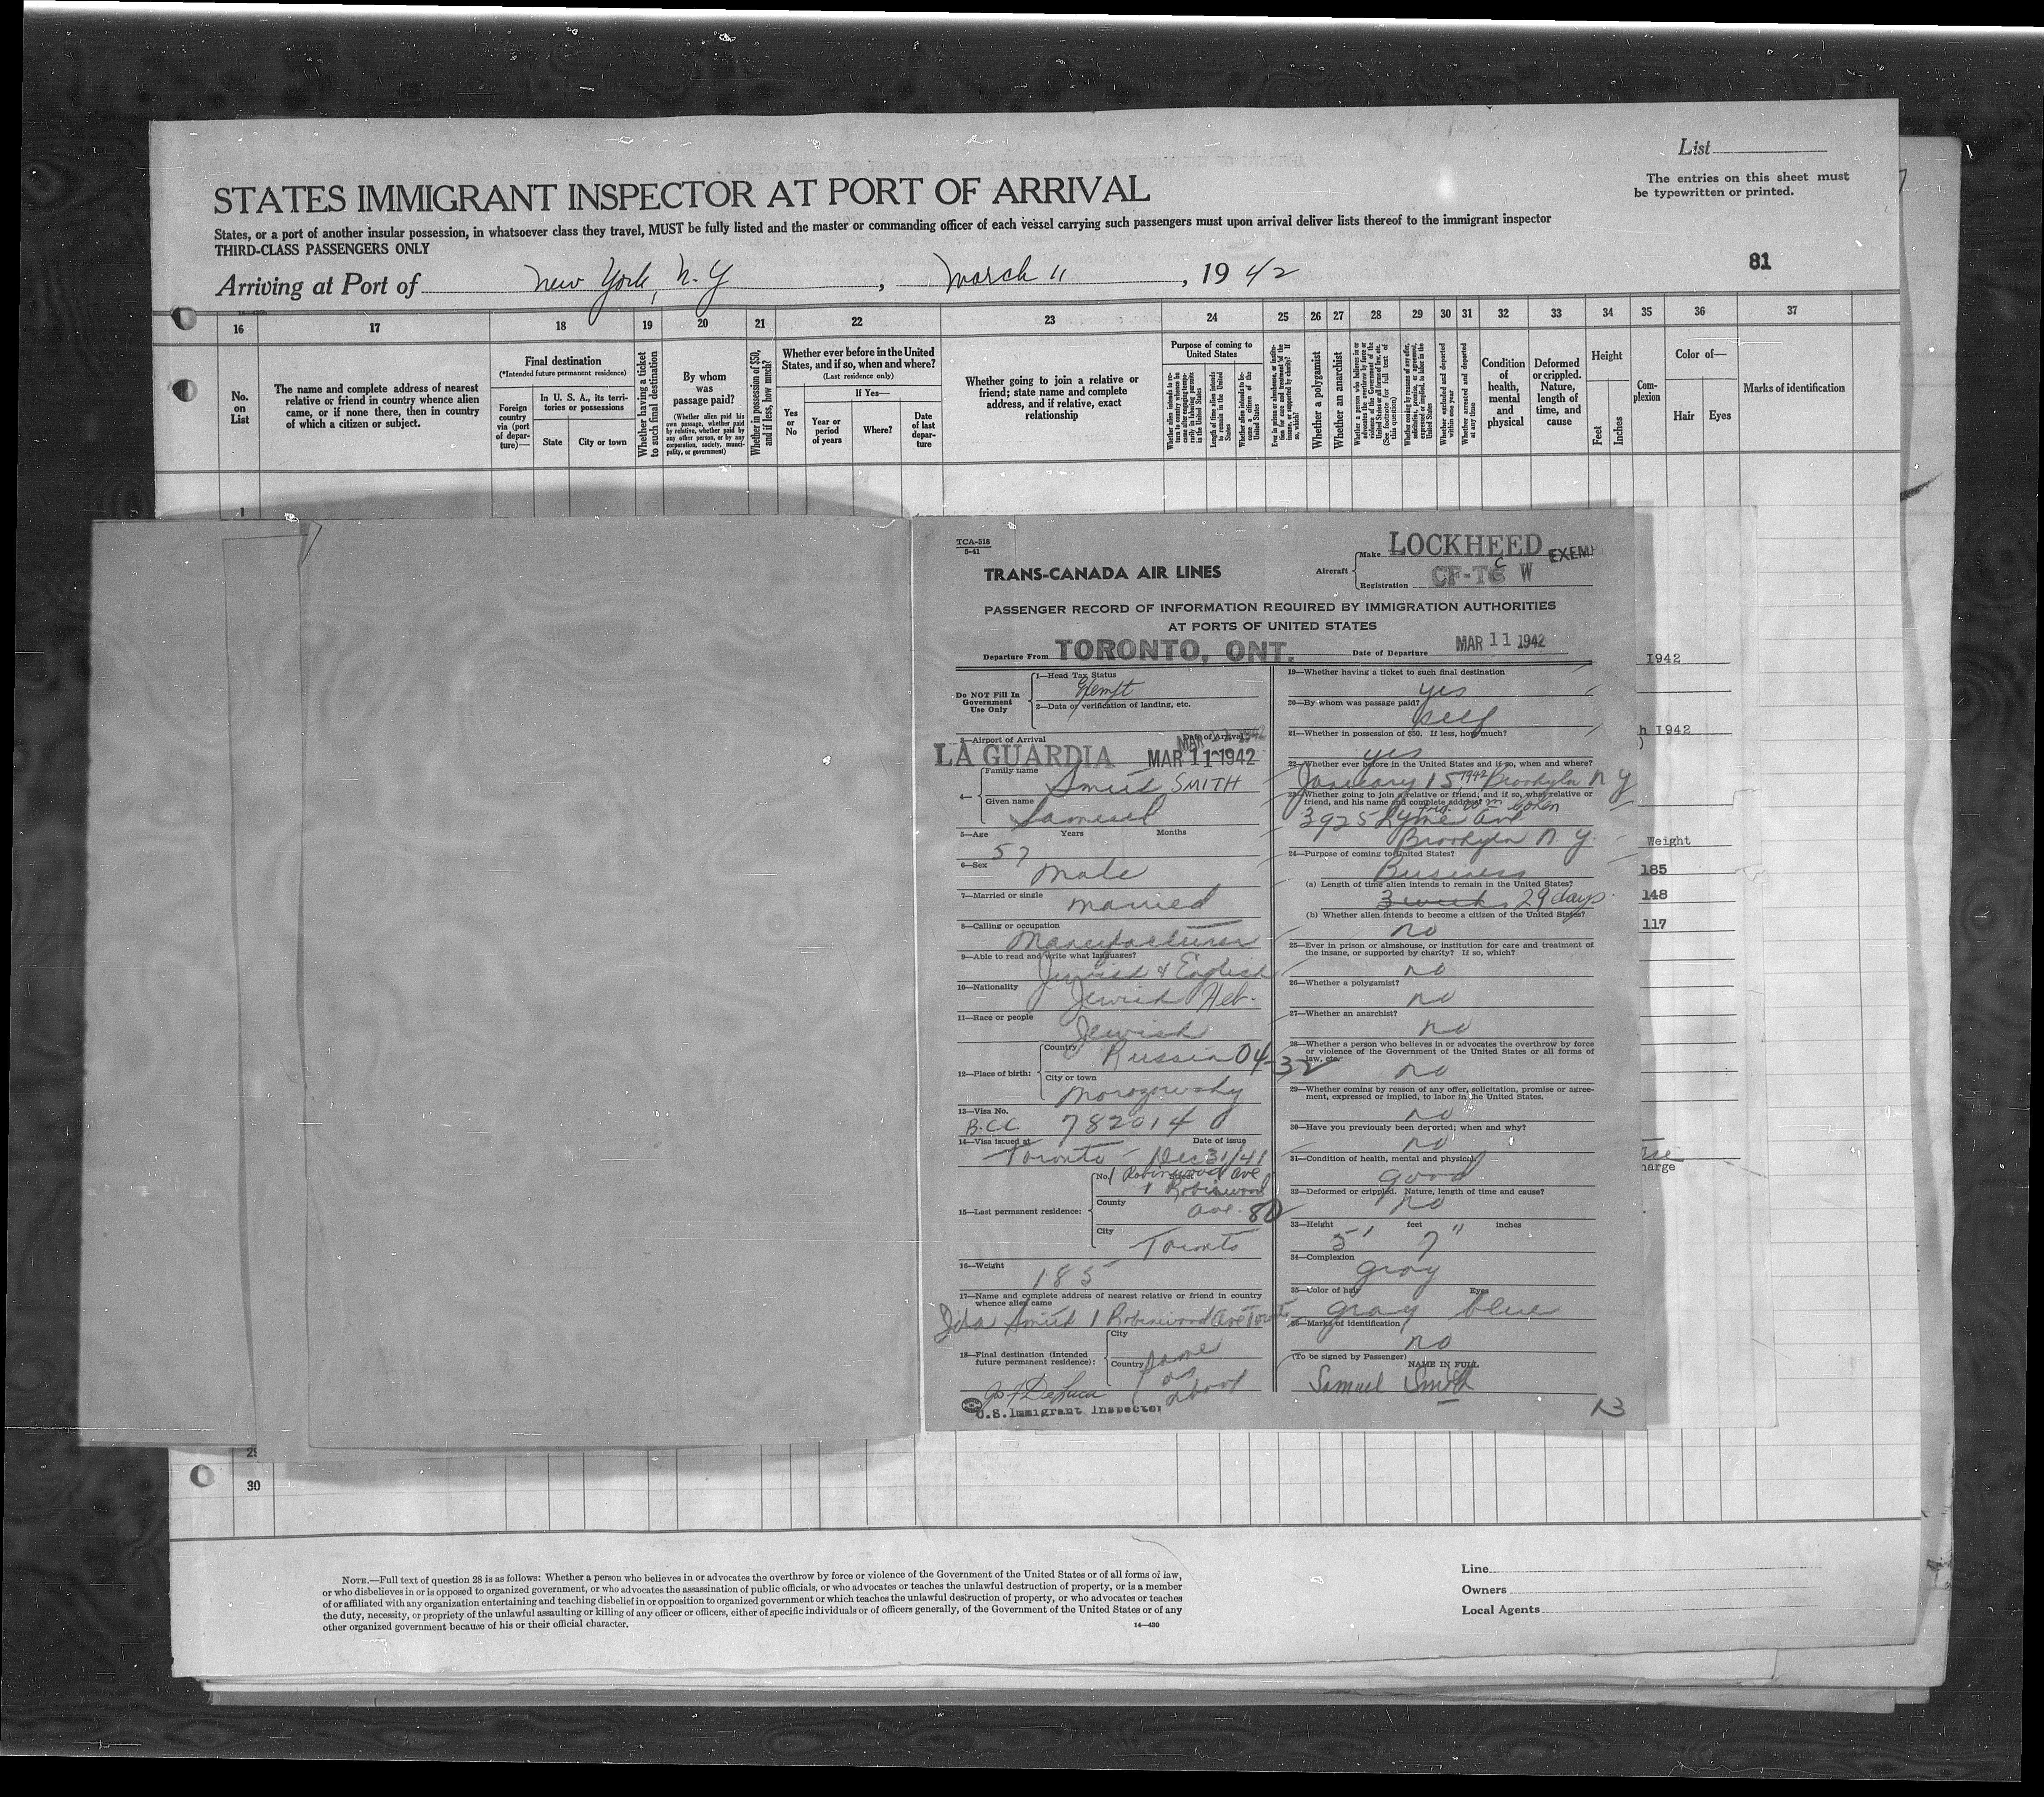 List
The entries on this sheet must
be typewritten or printed.
STATES IMMIGRANT INSPECTOR AT PORT OF ARRIVAL
States, or a port of another insular possession, in whatsoever class they travel, MUST be fully listed and the master or commanding officer of each vessel carrying such passengers must upon arrival deliver lists thereof to the immigrant inspector
THIRD-CLASS PASSENGERS ONLY
81
Arriving at Port of New York, N.Y, March 11, 1942
16 17 18 19 20 21 22 23 24 25 26 27 28 29 30 31 32 33 34 35 36 37
No. on List
The name and complete address of nearest
relative or friend in country whence alien
came, or if none there, then in country
of which a citizen or subject.
Final destination
(*Intended future permanent residence)
Foreign
country
via (port
of depar-
ture)—
In U. S. A., its terri-
tories or possessions
State
City or town
Whether having a ticket
to such final destination
By whom
was
passage paid?
(Whether alien paid his
own passage, whether paid
by relative, whether paid by
any other person, or by any
corporation, society, munici-
pality, or government)
Whether in possession of $50,
and if less, how much?
Whether ever before in the United
States, and if so, when and where?
(Last residence only)
If Yes—
Yes
or
No
Year or
period
of years
Where?
Date
of last
depar-
ture
Whether going to join a relative or
friend; state name and complete
address, and if relative, exact
relationship
Purpose of coming to
United States
Length of time alien intends
to remain in the United
States
Whether alien intends to be-
come a citizen of the
United States
Whether a polygamist
Whether an anarchist
Whether excluded and deported
within one year
Whether arrested and deported
at any time
Condition
of
health,
mental
and
physical
Deformed
or crippled.
Nature,
length of
time, and
cause
Height
Feet
Inches
Com-
plexion
Color of—
Hair
Eyes
Marks of identification
1
TCA-518
5-41
TRANS-CANADA AIR LINES
Aircraft
Make LOCKHEED
Registration CF-TC W
PASSENGER RECORD OF INFORMATION REQUIRED BY IMMIGRATION AUTHORITIES
AT PORTS OF UNITED STATES
Departure From TORONTO, ONT.
Date of Departure MAR 11 1942
Do NOT Fill In
Government
Use Only
1—Head Tax Status
Exempt
2—Data or verification of landing, etc.
3—Airport of Arrival
Date of Arrival
LA GUARDIA MAR 11 1942
4—
Family name Smith SMITH
Given name Samuel
5—Age Years Months
57
6—Sex
male
7—Married or single
married
8—Calling or occupation
Manufacturer
9—Able to read and write what languages?
Jewish & English
10—Nationality
Jewish Heb.
11—Race or people
Jewish
12—Place of birth:
Country
Russia 04-32
City or town
Morozowsky
13—Visa No.
B.C.C. 782014
14—Visa issued at Date of issue
Toronto - Dec 31/41
15—Last permanent residence:
No. 1 Robinwood Ave
1 Robinwood
County
Ave. 80
City
Toronto
16—Weight
185
17—Name and complete address of nearest relative or friend in country
whence alien came
Ida Smith 1 Robinwood Ave Toronto
18—Final destination (Intended
future permanent residence):
City
Country
same
as
above
Jos F DeLuca
U.S. Immigrant Inspector
19—Whether having a ticket to such final destination
yes
20—By whom was passage paid?
self
21—Whether in possession of $50. If less, how much?
yes
22—Whether ever before in the United States and if so, when and where?
January 15, 1942 Brooklyn N Y
23—Whether going to join a relative or friend; and if so, what relative or
friend, and his name and complete address
3925 Lyme Ave
Brooklyn N. Y.
24—Purpose of coming to United States?
Business
(a) Length of time alien intends to remain in the United States?
3 weeks 29 days
(b) Whether alien intends to become a citizen of the United States?
no
25—Ever in prison or almshouse, or institution for care and treatment of
the insane, or supported by charity? If so, which?
no
26—Whether a polygamist?
no
27—Whether an anarchist?
no
28—Whether a person who believes in or advocates the overthrow by force
or violence of the Government of the United States or all forms of
law, etc.
no
29—Whether coming by reason of any offer, solicitation, promise or agree-
ment, expressed or implied, to labor in the United States.
no
30—Have you previously been deported; when and why?
no
31—Condition of health, mental and physical
good
32—Deformed or crippled. Nature, length of time and cause?
no
33—Height feet inches
5' 7"
34—Complexion
gray
35—Color of hair Eyes
gray blue
36—Marks of identification
no
(To be signed by Passenger)
NAME IN FULL
Samuel Smith
13
1942
h 1942
Weight
185
148
117
30
NOTE.—Full text of question 28 is as follows: Whether a person who believes in or advocates the overthrow by force or violence of the Government of the United States or of all forms of law,
or who disbelieves in or is opposed to organized government, or who advocates the assassination of public officials, or who advocates or teaches the unlawful destruction of property, or is a member
of or affiliated with any organization entertaining and teaching disbelief in or opposition to organized government or which teaches the unlawful destruction of property, or who advocates or teaches
the duty, necessity, or propriety of the unlawful assaulting or killing of any officer or officers, either of specific individuals or of officers generally, of the Government of the United States or of any
other organized government because of his or their official character.
14—430
Line
Owners
Local Agents